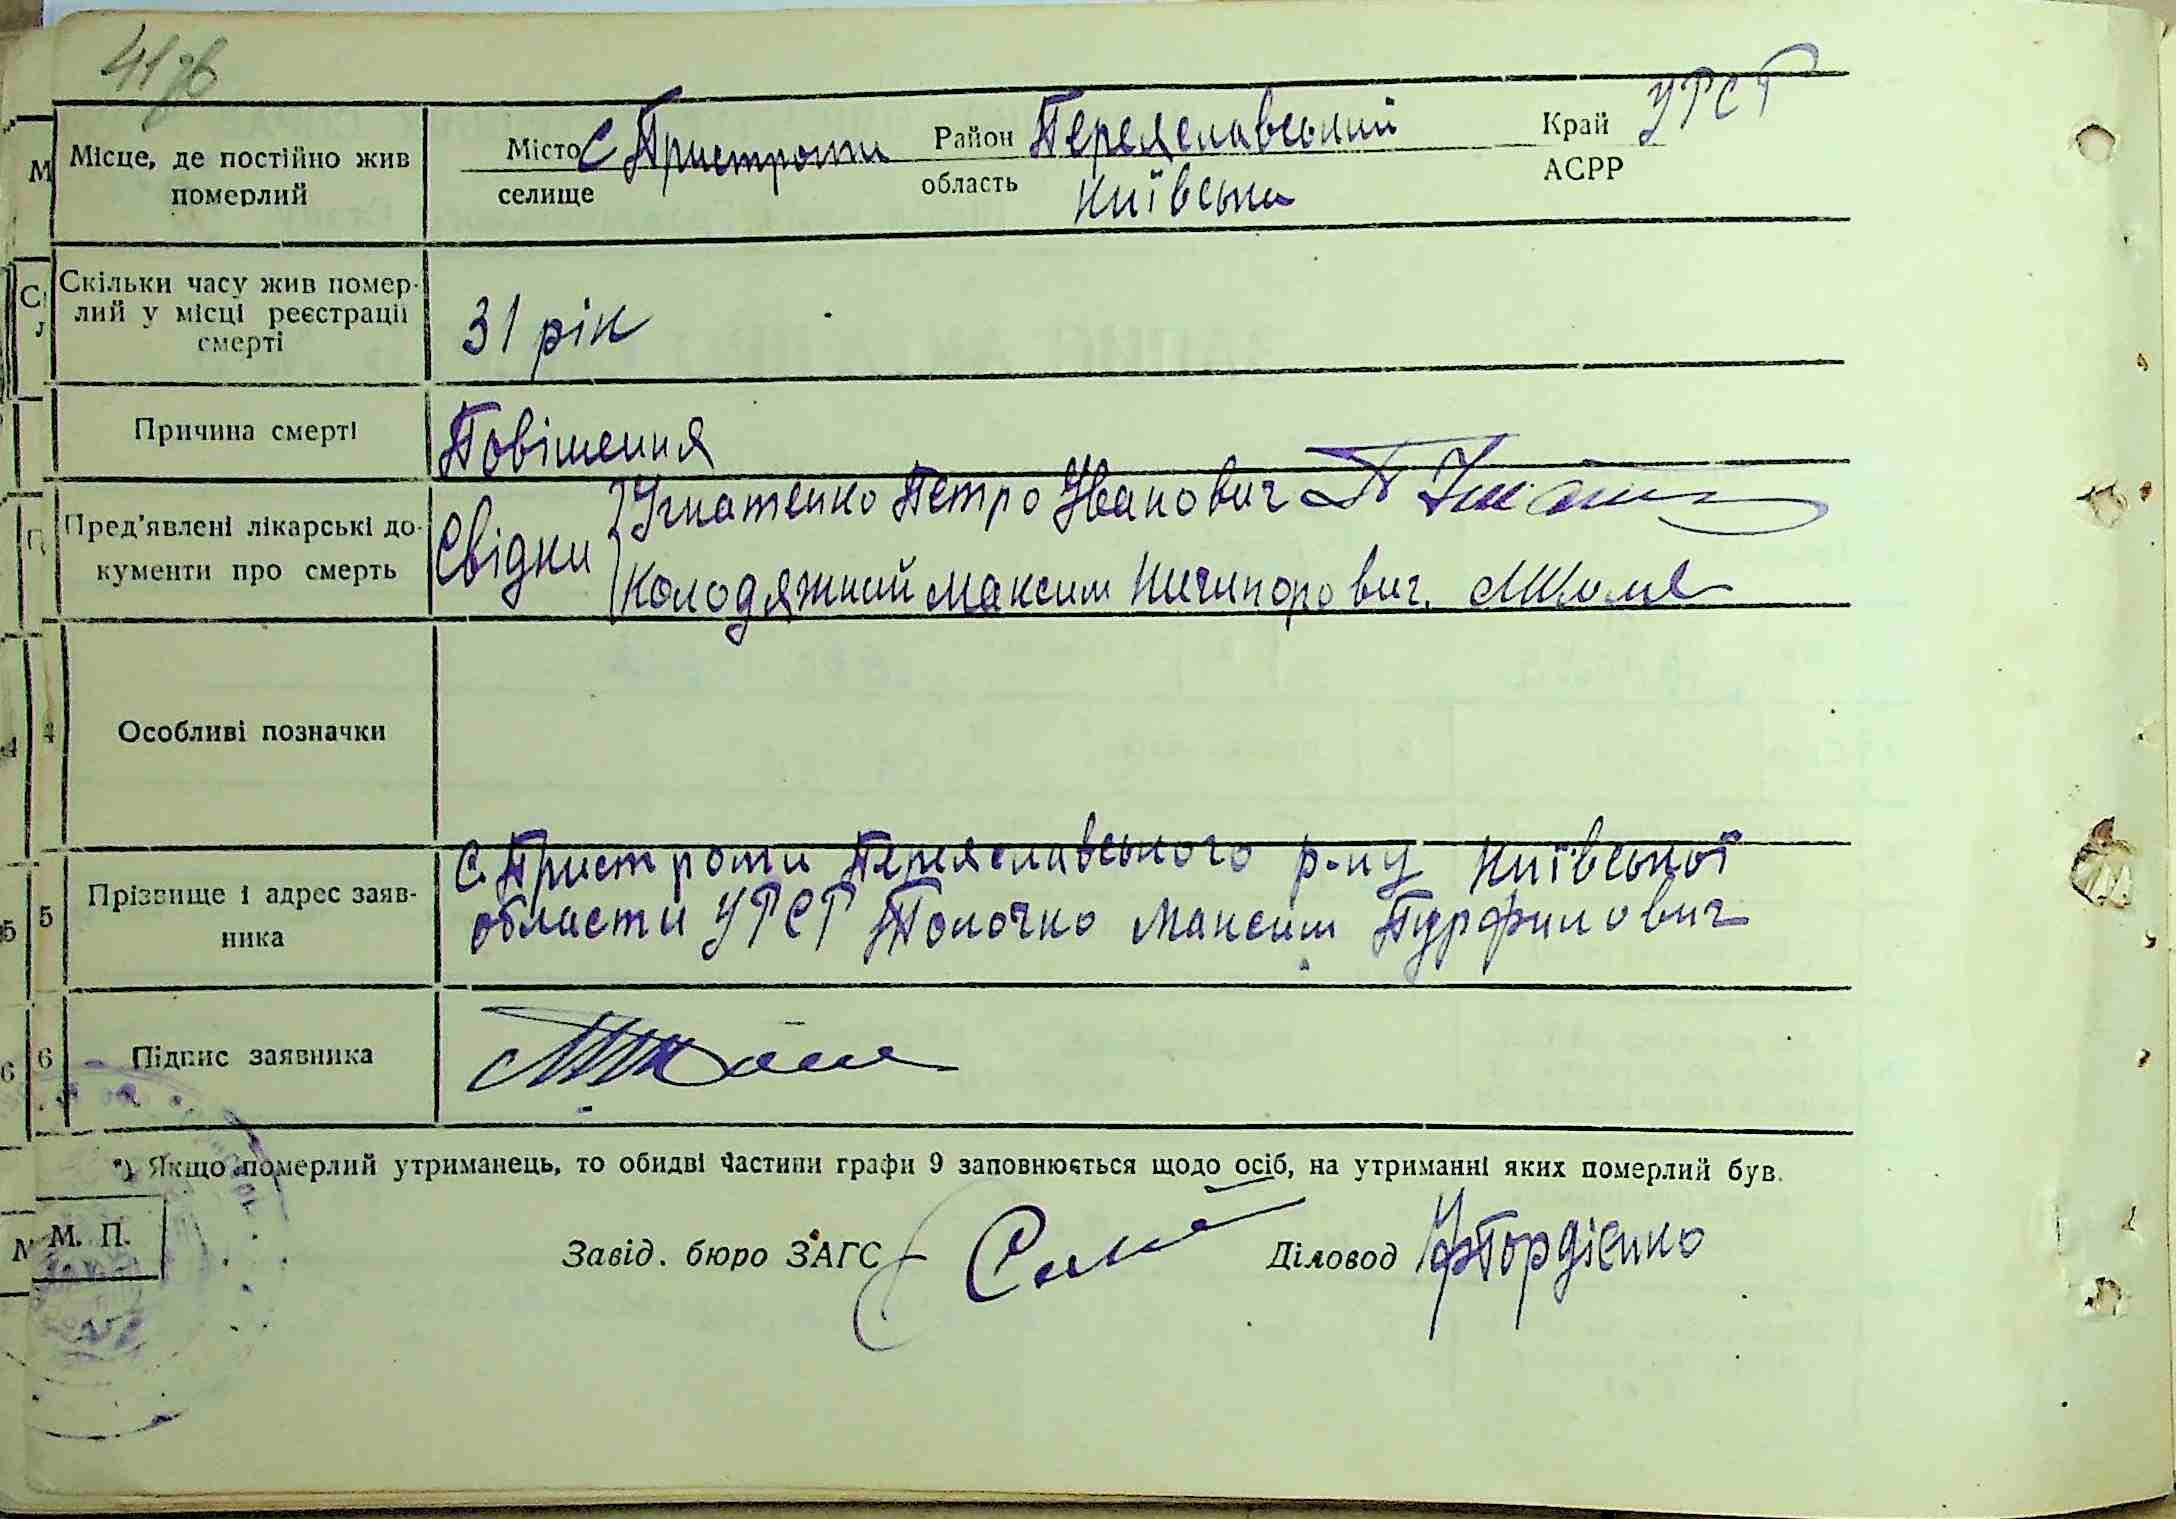 41 зв
Місце, де постійно жив
померлий
Місто С Пристроми Район Переяславський Край УРСР
селище область Київська АСРР
Скільки часу жив помер-
лий у місці реєстрації
смерті
31 рік
Причина смерті
Повішення
Пред'явлені лікарські до-
кументи про смерть
Свідки
Ігнатенко Петро Іванович
Колодяжний Максим Ничипорович.
4 4 Особливі позначки
5 5 Прізвище і адрес заяв-
ника
С. Пристроми Переяславського р-ну Київської
області УРСР Толочко Максим Пурфилович
6 6 Підпис заявника
*) Якщо померлий утриманець, то обидві частини графи 9 заповнюється щодо осіб, на утриманні яких померлий був.
М. П.
Завід. бюро ЗАГС Діловод Гордієнко